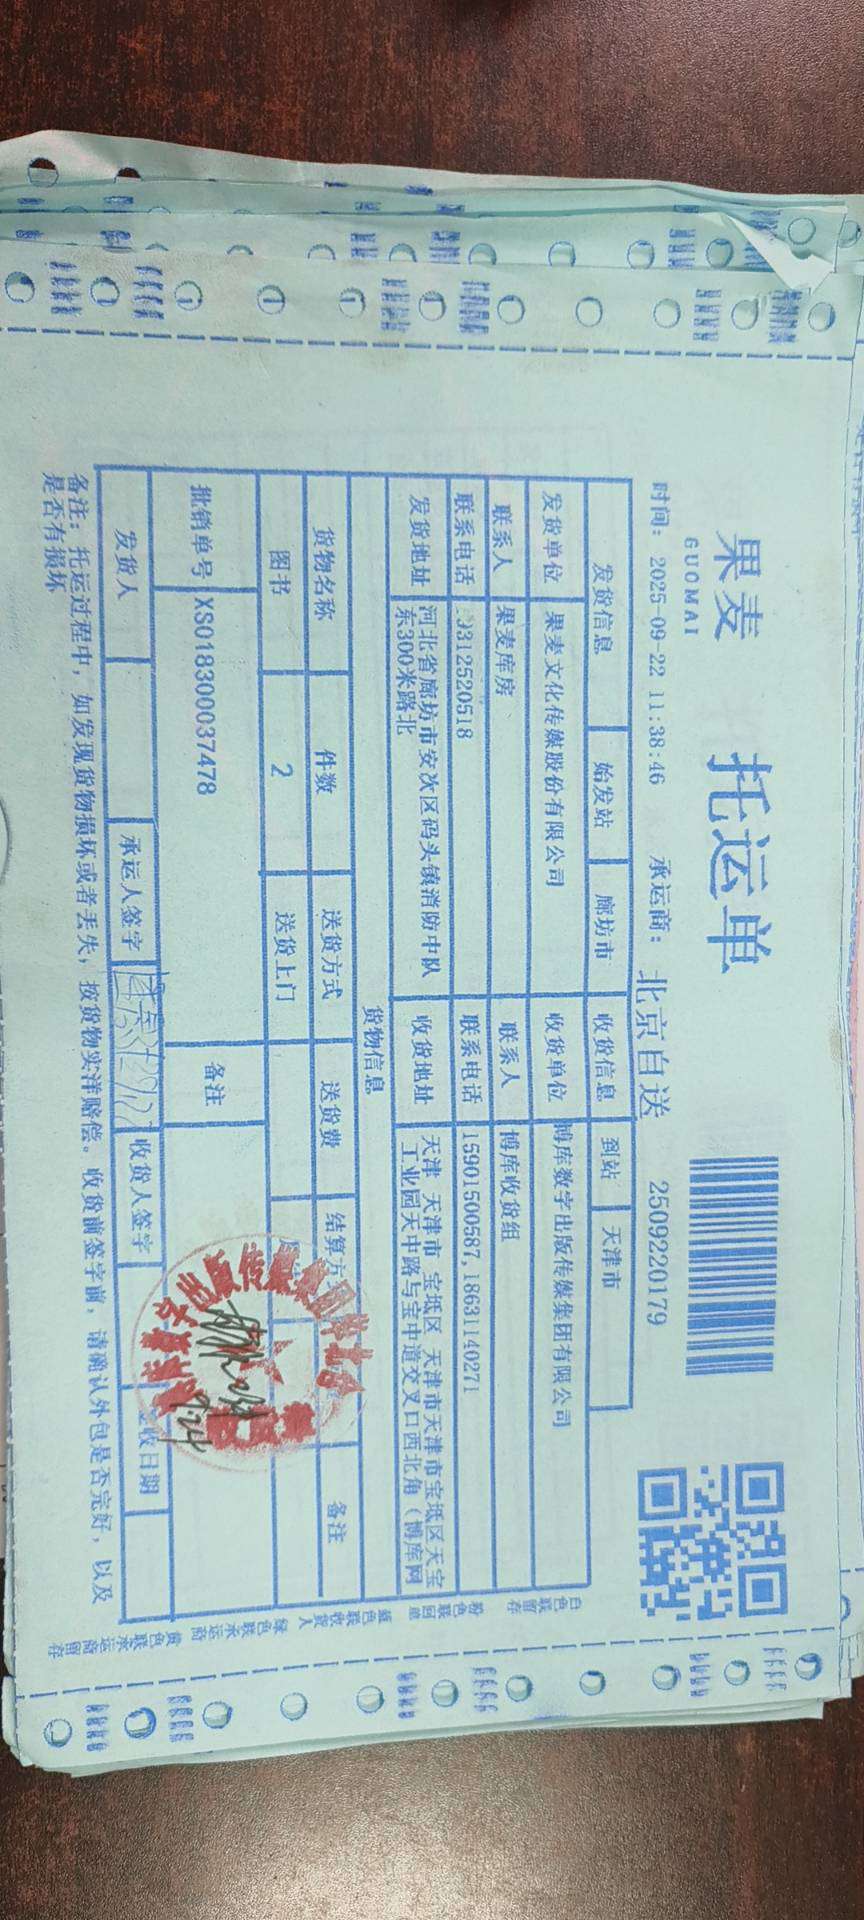 果麦
GUOMAI
托运单
时间: 2025-09-22 11:38:46 承运商: 北京自送 2509220179
发货信息 始发站 廊坊市 收货信息 到站 天津市
发货单位 果麦文化传媒股份有限公司 收货单位 博库数字出版传媒集团有限公司
联系人 果麦库房 联系人 博库收货组
联系电话 3312520518 联系电话 15901500587,18631140271
发货地址 河北省廊坊市安次区码头镇消防中队
东300米路北
收货地址 天津 天津市 宝坻区 天津市天津市宝坻区天宝
工业园天中路与宝中道交叉口西北角(博库网
货物信息
货物名称 件数 送货方式 送货费 结算方 备注
图书 2 送货上门
批销单号 XS018300037478 备注
发货人 承运人签字 收货人签字 收日期
备注: 托运过程中, 如发现货物损坏或者丢失, 按货物实洋赔偿。收货前签字前, 请确认外包是否完好, 以及
是否有损坏
白色联留存
粉色联回单
蓝色联收货人
绿色联承运商
黄色联承运商留存